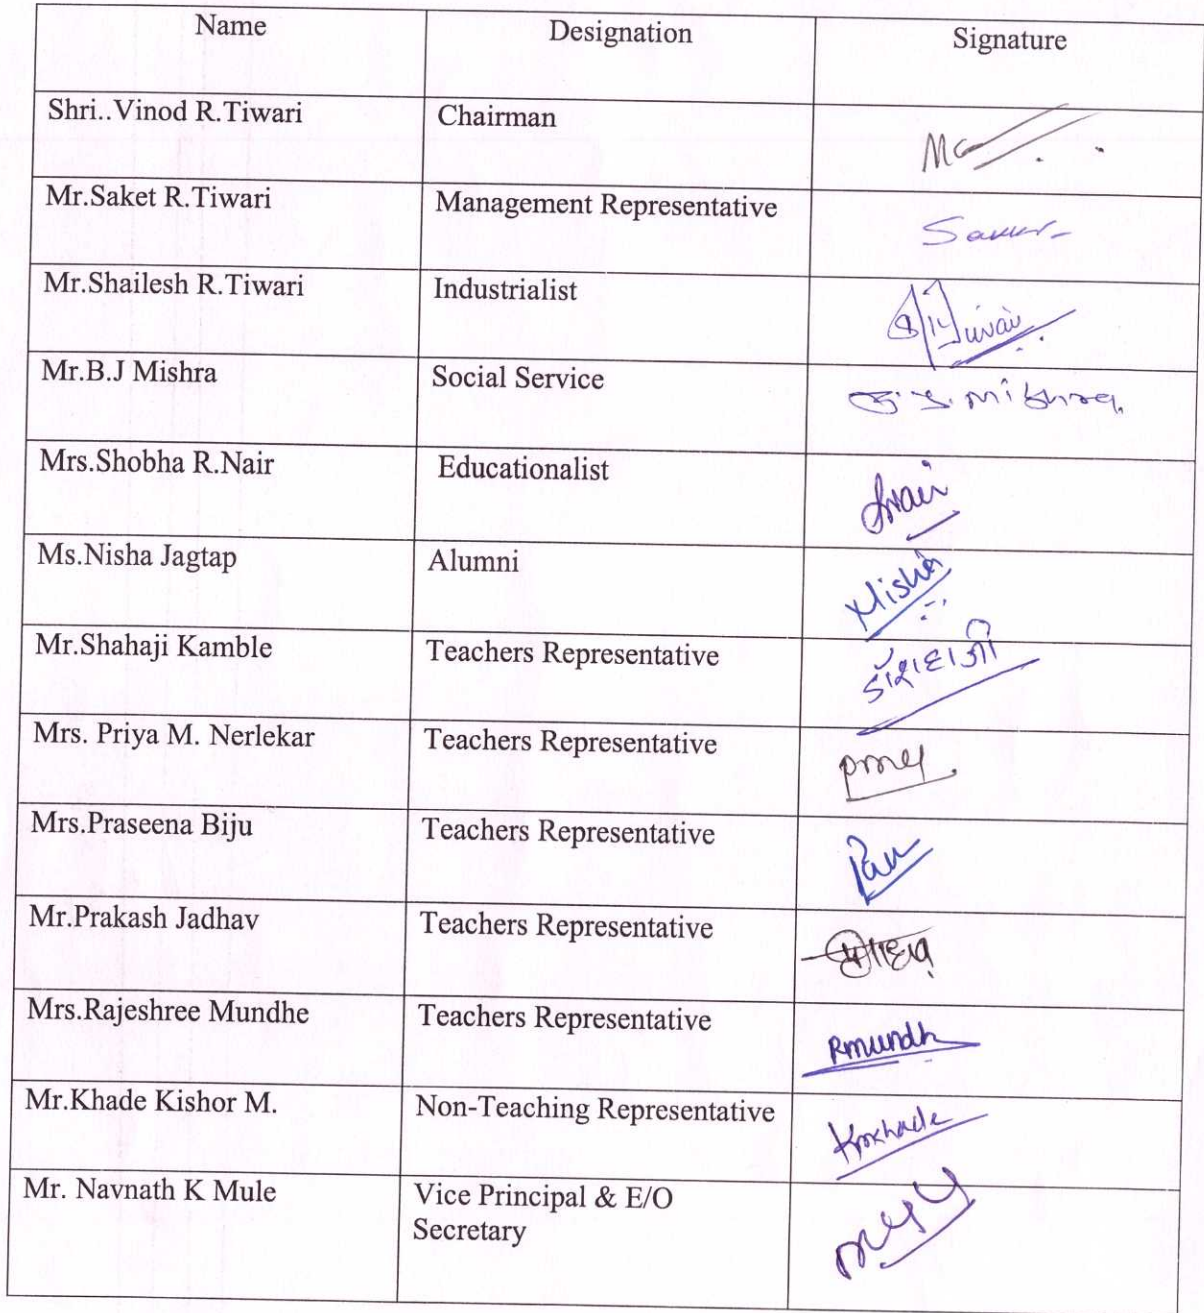 Name Designation Signature
Shri..Vinod R.Tiwari Chairman
Mr.Saket R.Tiwari Management Representative
Mr.Shailesh R.Tiwari Industrialist
Mr.B.J Mishra Social Service
Mrs.Shobha R.Nair Educationalist
Ms.Nisha Jagtap Alumni Nisha
Mr.Shahaji Kamble Teachers Representative
Mrs. Priya M. Nerlekar Teachers Representative
Mrs.Praseena Biju Teachers Representative
Mr.Prakash Jadhav Teachers Representative
Mrs.Rajeshree Mundhe Teachers Representative Rmundh
Mr.Khade Kishor M. Non-Teaching Representative
Mr. Navnath K Mule Vice Principal & E/O
Secretary